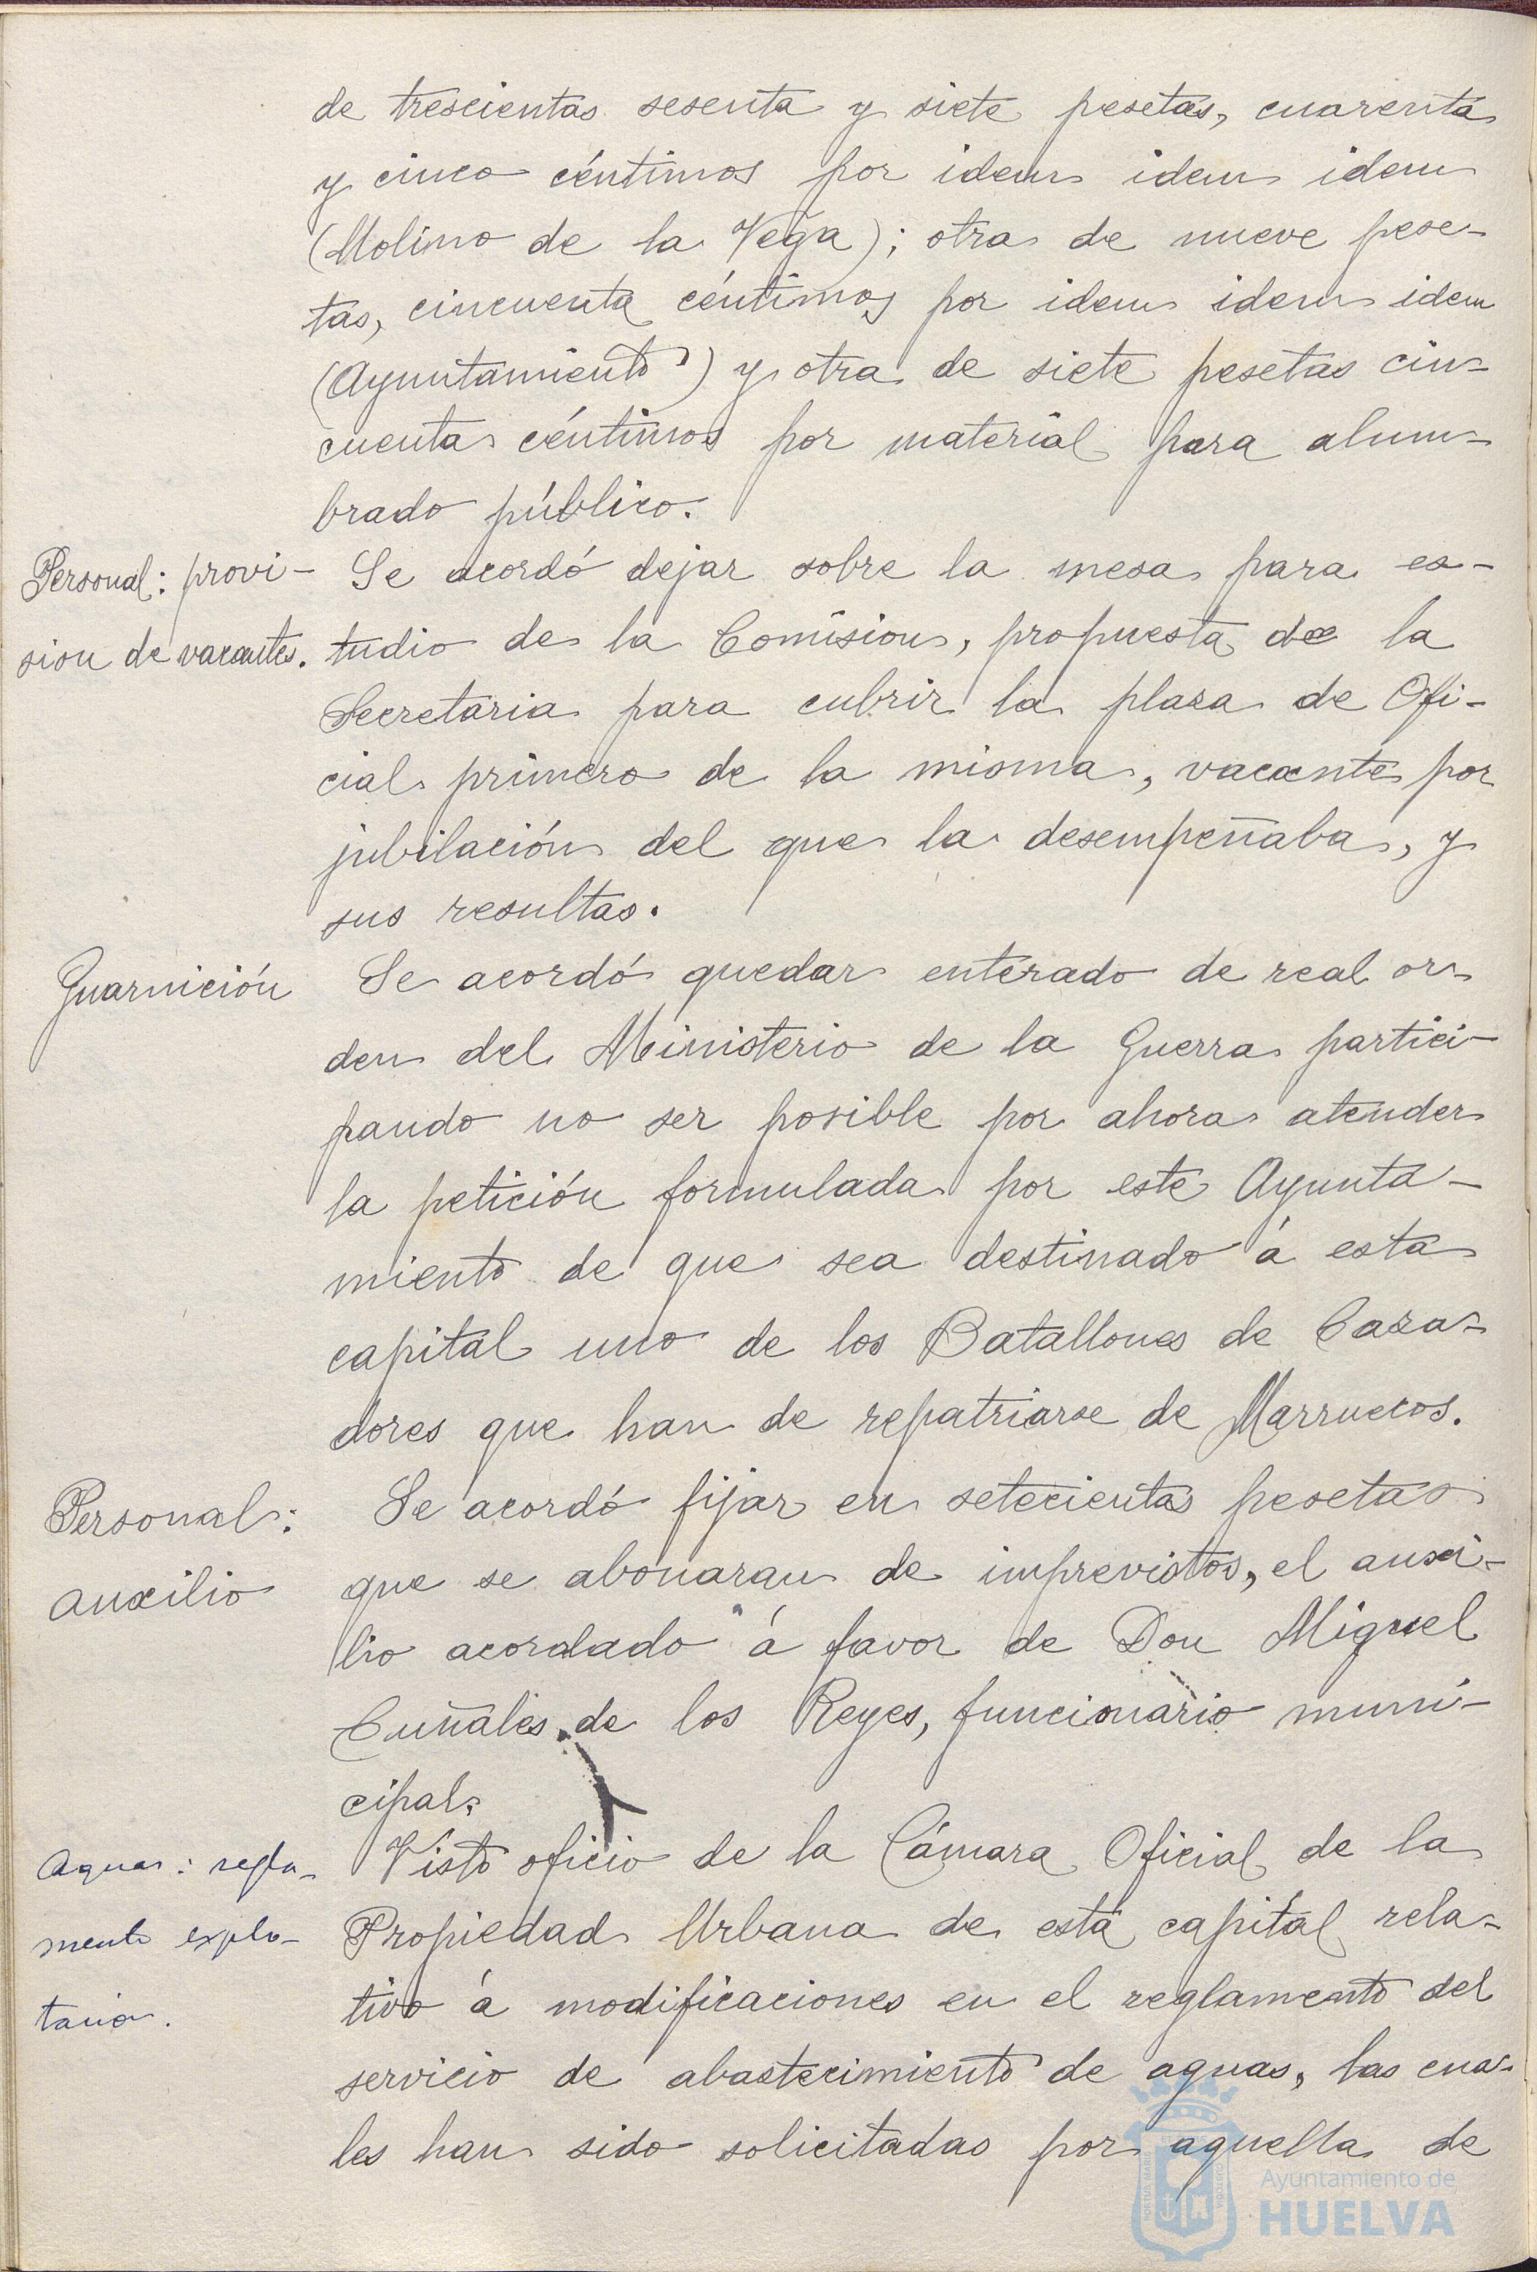 de trescientas sesenta y siete pesetas, cuarenta
y cinco céntimos por idem idem idem
(Molino de la Vega); otra de nueve pese-
tas, cincuenta céntimos por idem idem idem
(Ayuntamiento) y otra de siete pesetas cin-
cuenta céntimos por material para alum-
brado público.
Personal: provi-
sion de vacantes.
Se acordó dejar sobre la mesa para es-
tudio de la Comision, propuesta de la
Secretaria para cubrir la plaza de Ofi-
cial primero de la misma, vacante por
jubilación del que la desempeñaba, y
sus resultas.
Guarnición
Se acordó quedar enterado de real or-
den del Ministerio de la Guerra partici-
pando no ser posible por ahora atender
la petición formulada por este Ayunta-
miento de que sea destinado á esta
capital uno de los Batallones de Caza-
dores que han de repatriarse de Marruecos.
Personal:
auxilio
Se acordó fijar en setecientas pesetas
que se abonaran de imprevistos, el auxi-
lio acordado á favor de Don Miguel
Cuñales de los Reyes, funcionario muni-
cipal.
Aguas: regla-
mento explo-
taria.
Visto oficio de la Cámara Oficial de la
Propiedad Urbana de esta capital rela-
tivo á modificaciones en el reglamento del
servicio de abastecimiento de aguas, las cua-
les han sido solicitadas por aquella de
Ayuntamiento de
HUELVA